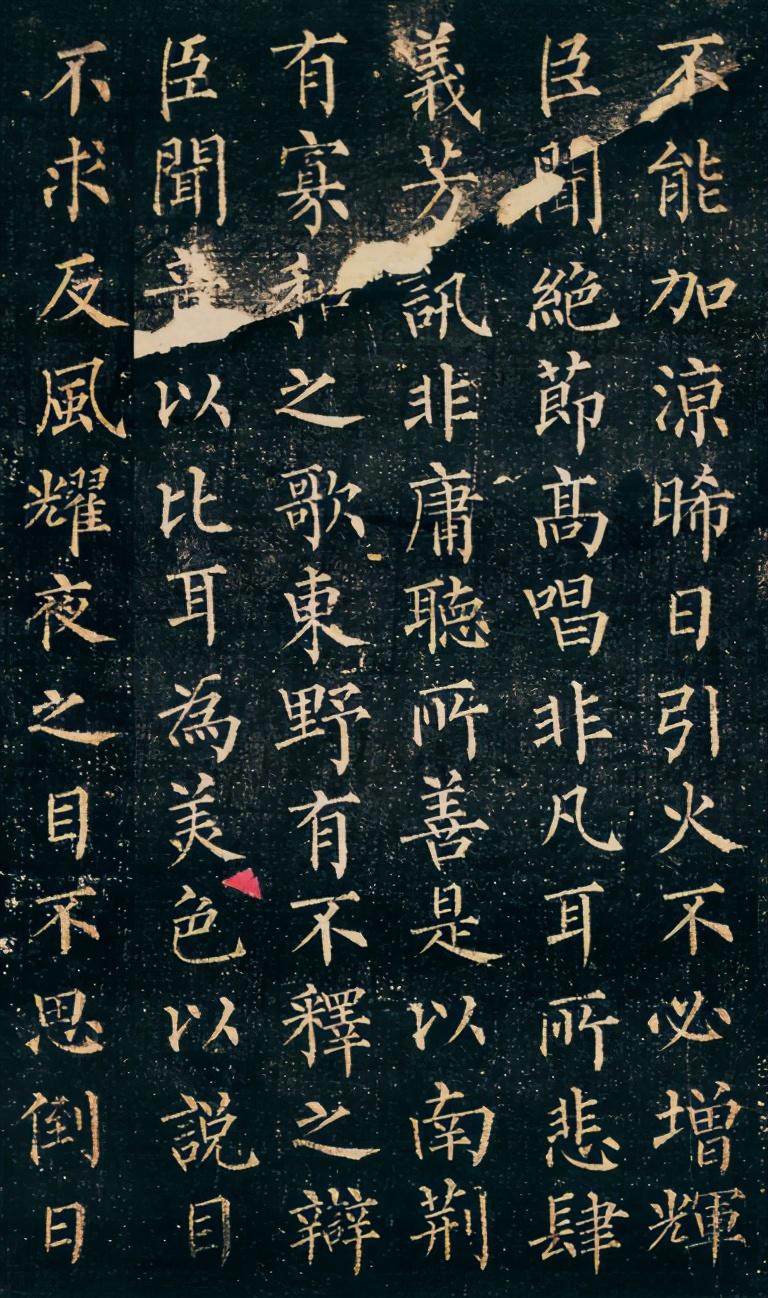 不能加涼晞日引火不必增輝
臣聞絶莭髙唱非凡耳所悲肆
義芳訊非庸聴所善是以南荊
有寡和之歌東野有不釋之辯
臣聞音以比耳為美色以說目
不求反風耀夜之目不思倒日